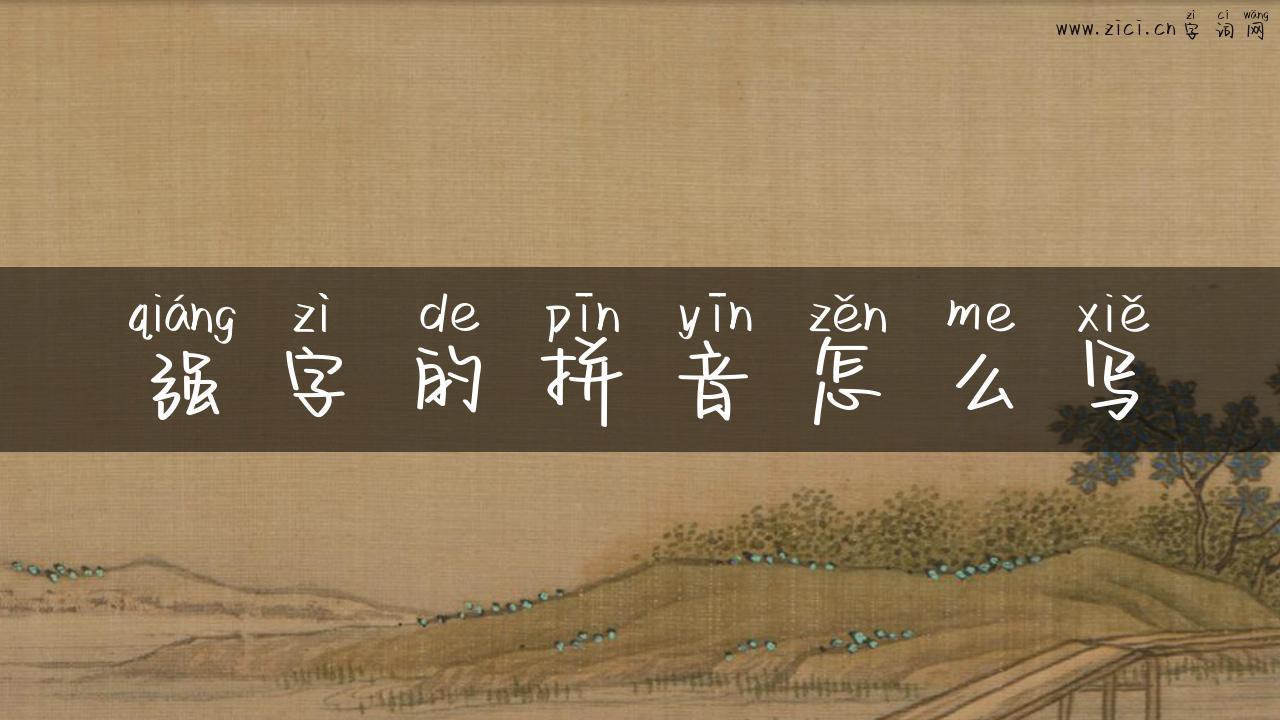 zì cí wǎng
www.zici.cn字词网
qiáng zì de pīn yīn zěn me xiě
强字的拼音怎么写